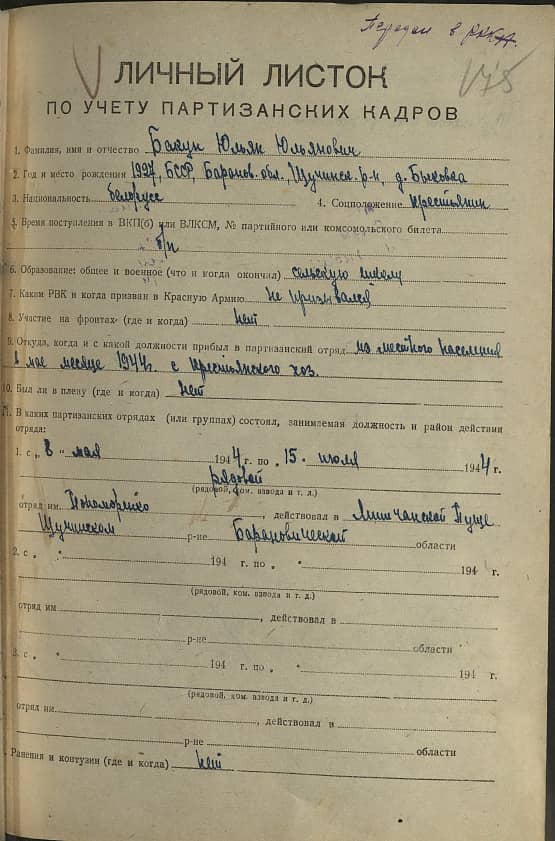 Передан в РККА.
ЛИЧНЫЙ ЛИСТОК
ПО УЧЕТУ ПАРТИЗАНСКИХ КАДРОВ
1. Фамилия, имя и отчество Бакун Юльян Юльянович
2. Год и место рождения 1927, БССР, Баранов. обл., Щучинск. р-н, д. Быковка
3. Национальность белорусс 4. Соцположение крестьянин
5. Время поступления в ВКП(б) или ВЛКСМ, № партийного или комсомольского билета
б/п
6. Образование: общее и военное (что и когда окончил) сельскую школу
7. Каким РВК и когда призван в Красную Армию не призывался
8. Участие на фронтах (где и когда) нет
9. Откуда, когда и с какой должности прибыл в партизанский отряд из местного населения
в мае месяце 1944г. с крестьянского хоз.
10. Был ли в плену (где и когда) нет
11. В каких партизанских отрядах (или группах) состоял, занимаемая должность и район действия
отряда:
1. с „ 8 " мая 1944 г. по „ 15. июля 1944 г.
рядовой
(рядовой, ком. взвода и т. д.)
отряд им. Пономаренко, действовал в Липичанской Пуще
Щучинском р-не Барановической области
2. с „ " 194 г. по „ " 194 г.
(рядовой, ком. взвода и т. д.)
отряд им. , действовал в
р-не области
3. с „ " 194 г. по „ " 194 г.
(рядовой, ком. взвода и т. д.)
отряд им. , действовал в
р-не области
Ранения и контузии (где и когда) нет